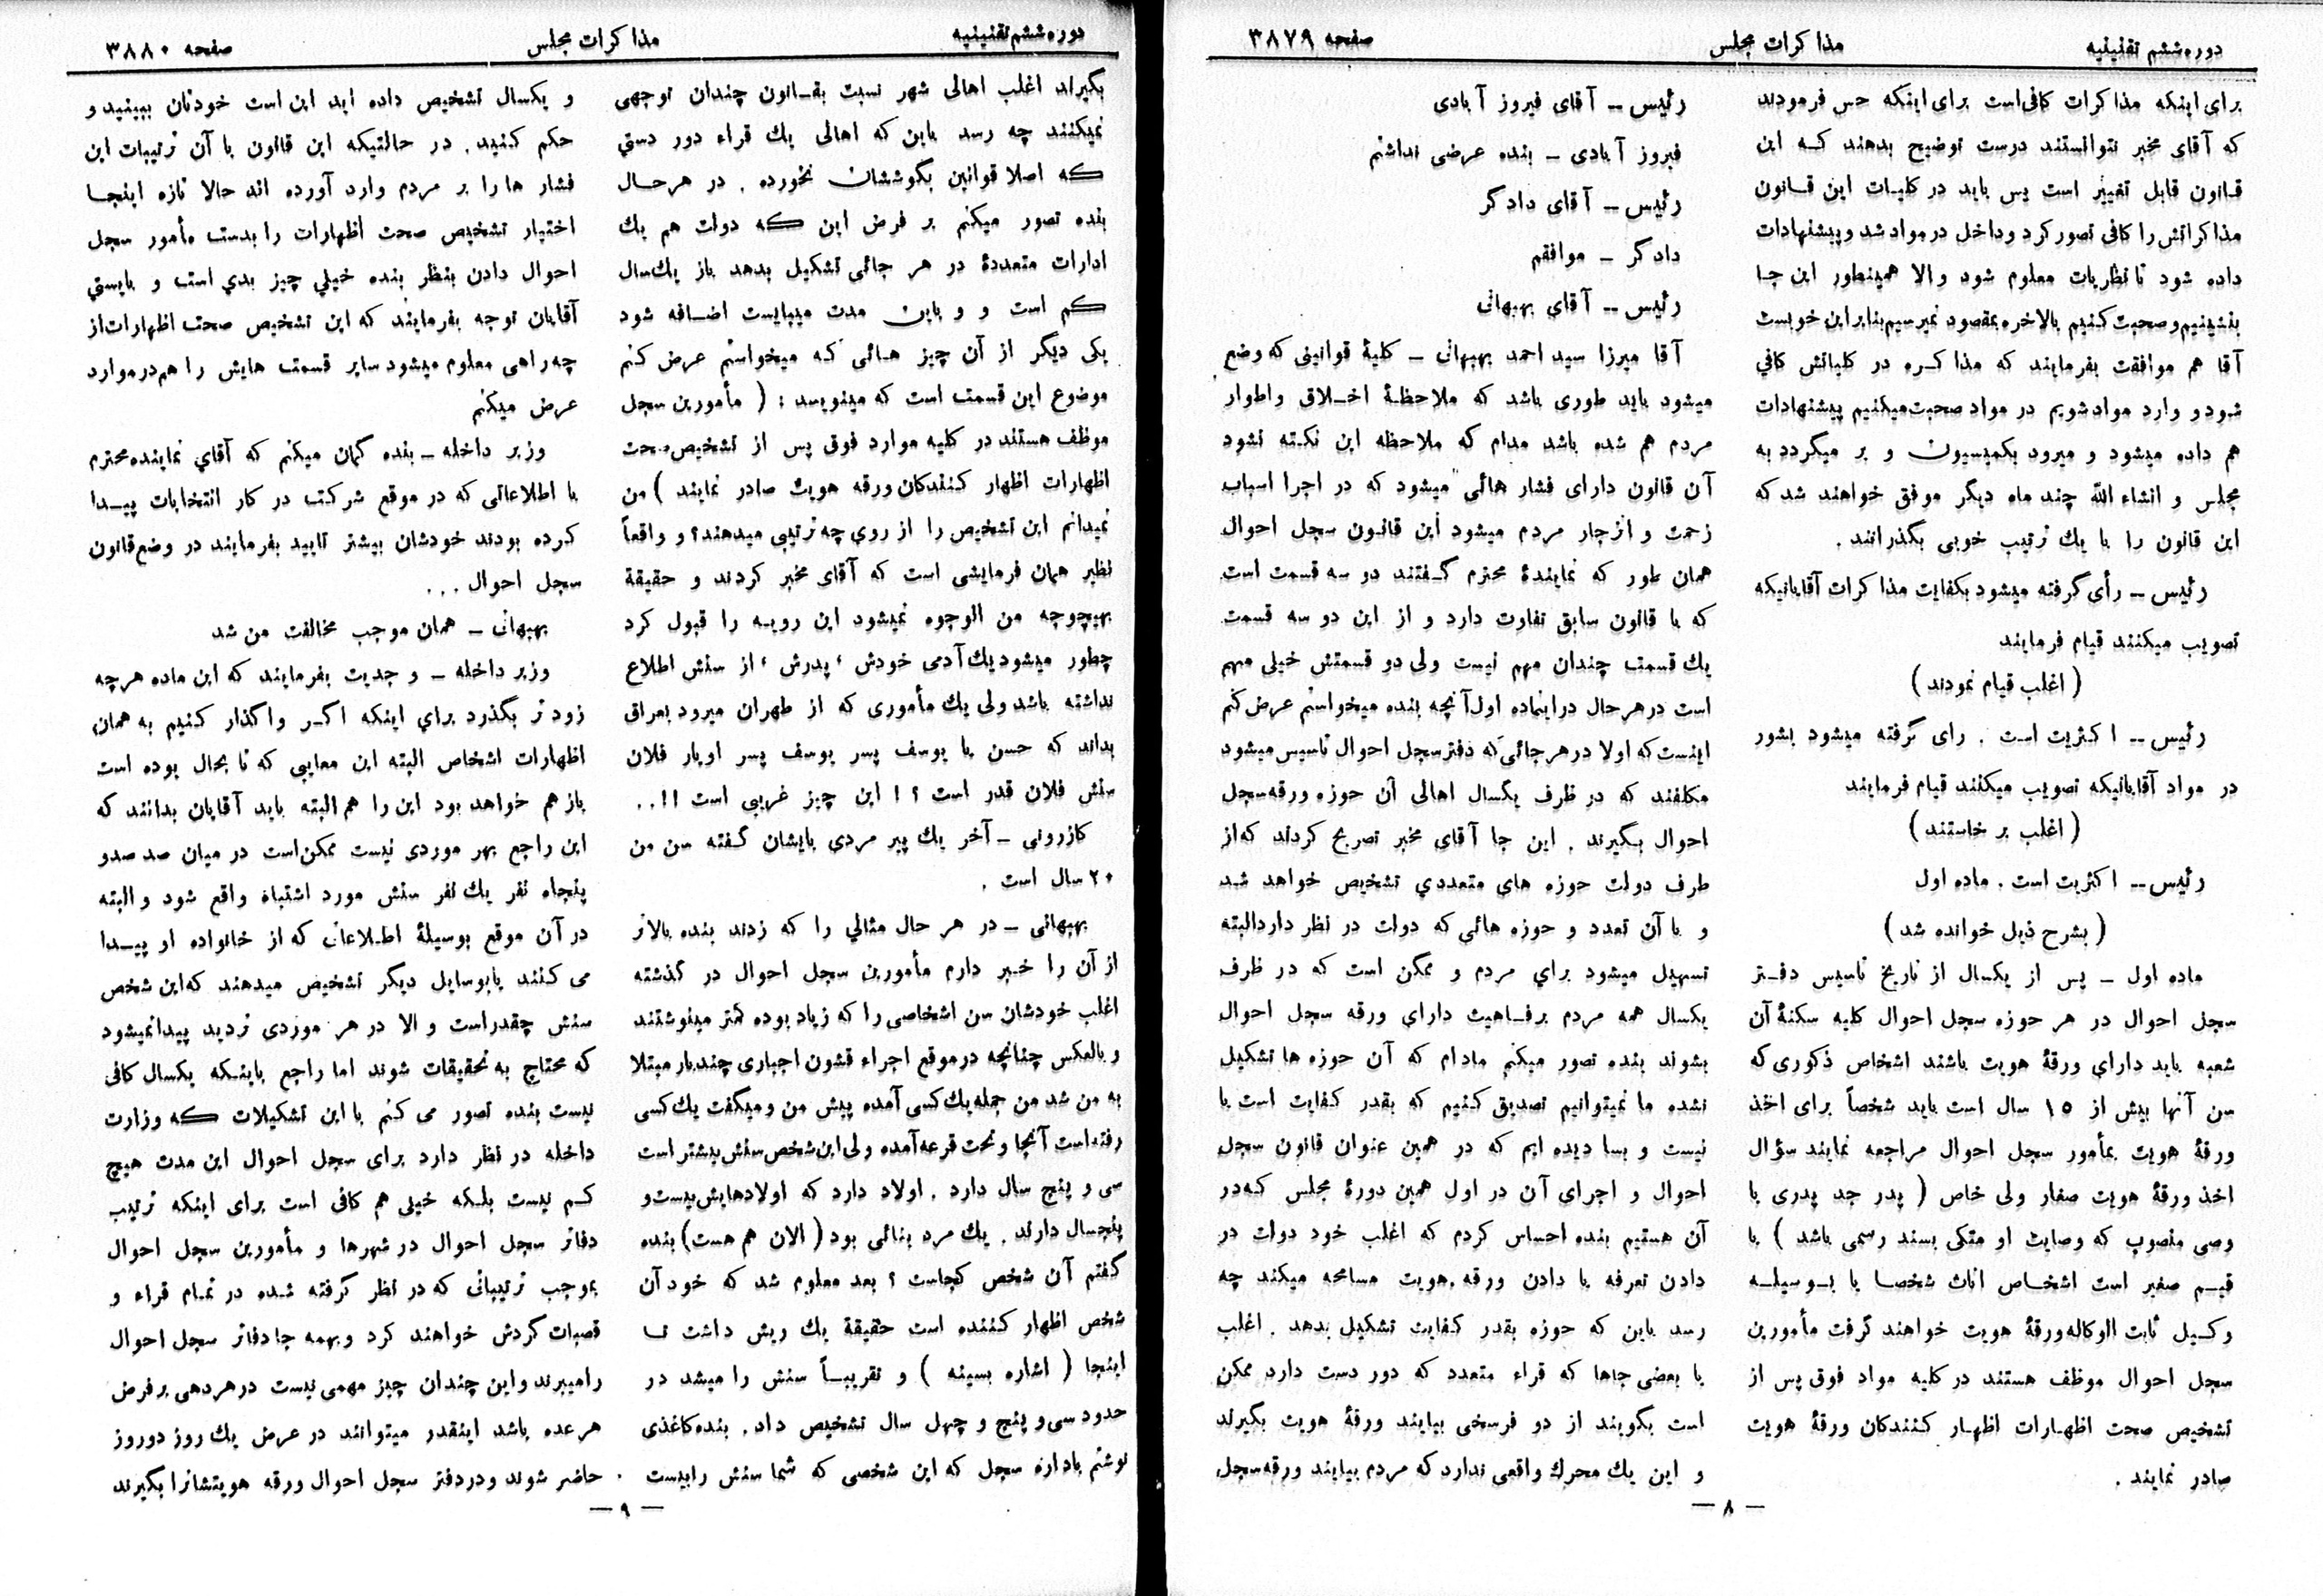 دوره ششم تقنینیه
مذاکرات مجلس
صفحه ۳۸۷۹
برای اینکه مذاکرات کافی است برای اینکه حس فرمودند
که آقای مخبر نتوانستند درست توضیح بدهند کـه این
قـانون قابل تغییر است پس باید در کلیـات این قـانون
مذاکراتش را کافی تصور کرد و داخل در مواد شد و پیشنهادات
داده شود تا نظریات معلوم شود والا همینطور این جـا
بنشینیم و صحبت کنیم بالاخره بمقصود نمیرسیم بنابراین خوبست
آقا هم موافقت بفرمایند که مذاکـره در کلیاتش کافي
شود و وارد مواد شویم در مواد صحبت میکنیم پیشنهادات
هم داده میشود و میرود بکمیسیون و بر میگردد به
مجلس و انشاء الله چند ماه دیگر موفق خواهند شد که
این قانون را با یك ترتیب خوبی بگذرانند .
رئیس ــ رأی گرفته میشود بکفایت مذاکرات آقایانیکه
تصویب میکنند قیام فرمایند
( اغلب قیام نمودند )
رئیس ــ اکثریت است . رای گرفته میشود بشور
در مواد آقایانیکه تصویب میکنند قیام فرمایند
( اغلب بر خاستند )
رئیس ــ اکثریت است . ماده اول
( بشرح ذیل خوانده شد )
ماده اول ــ پس از یکسال از تاریخ تاسیس دفـتر
سجل احوال در هر حوزه سجل احوال کلیه سکنهٔ آن
شعبه باید دارای ورقهٔ هویت باشند اشخاص ذکوری که
سن آنها بیش از ۱۵ سال است باید شخصاً برای اخذ
ورقهٔ هویت بمأمور سجل احوال مراجعه نمایند سؤال
اخذ ورقهٔ هویت صغار ولی خاص ( پدر جد پدری با
وصی منصوب که وصایت او متکی بسند رسمی باشد ) با
قیـم صغیر است اشخـاص اناث شخصـا یا بـوسیلـه
وکـیل ثابت الوکاله ورقهٔ هویت خواهند گرفت مأمورین
سجل احوال موظف هستند در کلیه مواد فوق پس از
تشخیص صحت اظهـارات اظهـار کنندکان ورقهٔ هویت
صادر نمایند .
رئیس ــ آقای فیروز آبادی
فیروز آبادی ــ بنده عرضی نداشتم
رئیس ــ آقای دادگر
دادگر ــ موافقم
رئیس ــ آقای بهبهانی
آقا میرزا سید احمد بهبهانی ــ کلیهٔ قوانینی که وضع
میشود باید طوری باشد که ملاحظـهٔ اخـلاق واطوار
مردم هم شده باشد مدام که ملاحظه این نکـته نشود
آن قانون دارای فشار هائی میشود که در اجرا اسباب
زحمت و انزجار مردم میشود این قانـون سجل احوال
همان طور که نمایندهٔ محترم گـفتند دو سه قسمت است
که با قانون سابق تفاوت دارد و از این دو سه قسمت
یك قسمت چندان مهم نیست ولی دو قسمتش خیلی مهم
است در هر حال در اینماده اول آنچه بنده میخواستم عرض کنم
اینست که اولا در هر جائی که دفتر سجل احوال تاسیس میشود
مکلفند که در ظرف یکسال اهالی آن حوزه ورقه سجل
احوال بگیرند . این جا آقای مخبر تصریح کردند که از
طرف دولت حوزه های متعددي تشخیص خواهد شـد
و با آن تعدد و حوزه هائی که دولت در نظر دارد البته
تسهیل میشود براي مردم و ممکن است که در ظرف
یکسال همه مردم برفـاهیت دارای ورقه سجل احوال
بشوند بنده تصور میکنم مادام که آن حوزه ها تشکیل
نشده ما نمیتوانیم تصدیق کنیم که بقدر کفایت است یا
نیست و بسا دیده ایم که در همین عنوان قانون سجل
احوال و اجرای آن در اول همین دورهٔ مجلس که در
آن هستیم بنده احساس کردم که اغلب خود دولت در
دادن تعرفه یا دادن ورقه هویت مسامحه میکند چه
رسد باین که حوزه بقدر کفایت تشکیل بدهد . اغلب
یا بعضی جاها که قراء متعدد که دور دست دارد ممکن
است بگویند از دو فرسخی بیایند ورقهٔ هویت بگیرند
و این یك محرك واقعی ندارد که مردم بیایند ورقه سجل
— ۸ —
دوره ششم تقنینیه
مذاکرات مجلس
صفحه ۳۸۸۰
بگیرند اغلب اهالی شهر نسبت بقـانون چندان توجهی
نمیکنند چه رسد باین که اهالی یك قراء دور دستي
که اصلا قوانین بگوششان نخورده . در هر حـال
بنده تصور میکنم بر فرض این که دولت هم یك
ادارات متعددهٔ در هر جائی تشکیل بدهد باز یكسال
کم است و و باین مدت میبایست اضـافه شود
یکی دیگر از آن چیز هـائی که میخواستم عرض کنم
موضوع این قسمت است که مینویسد : ( مأمورین سجل
موظف هستند در کلیه موارد فوق پس از تشخیص صحت
اظهارات اظهار کنندکان ورقه هویت صادر نمایند ) من
نمیدانم این تشخیص را از روي چه ترتیبی میدهند ؟ و واقعاً
نظیر همان فرمایشی است که آقای مخبر کردند و حقیقة
بهیچوجه من الوجوه نمیشود این رویـه را قبول کرد
چطور میشود یك آدمی خودش ، پدرش ، از سنش اطلاع
نداشته باشد ولی یك مأموری که از طهران میرود بعراق
بداند که حسن یا یوسف پسر یوسف پسر اویار فلان
سنش فلان قدر است ؟ ! این چیز غریبی است !! . .
کازرونی ــ آخر یك پیر مردی بایشان گـفته سن من
۲۰ سال است .
بهبهانی ــ در هر حال مثالی را که زدند بنده بالاتر
از آن را خـبر دارم مأمورین سجل احوال در گذشته
اغلب خودشان سن اشخاصی را که زیاد بوده کمتر مینوشتند
و بالعکس چنانچه در موقع اجراء قشون اجباری چند بار مبتلا
به من شد من جمله یك کسی آمده پیش من و میگفت یك کسی
رفته است آنجا و تحت قرعه آمده ولی این شخص سنش بیشتر است
سی و پنج سال دارد . اولاد دارد که اولادهایش بیست و
پنجسال دارند . یك مرد بنائی بود ( الان هم هست ) بنده
گفتم آن شخص کجاست ؟ بعد معلوم شد که خود آن
شخص اظهار کننده است حقیقة یك ریش داشت تـا
اینجا ( اشاره بسینه ) و تقریبـاً سنش را میشد در
حدود سی و پنج و چهل سال تشخیص داد . بنده کاغذی
نوشتم باداره سجل که این شخصی که شما سنش را بیست
و یکسال تشخیص داده اید این است خودتان ببینید و
حکم کنید . در حالتیکه این قانون با آن ترتیبات این
فشار ها را بر مردم وارد آورده اند حالا تازه اینجـا
اختیار تشخیص صحت اظهارات را بدست مأمور سجل
احوال دادن بنظر بنده خیلي چیز بدي است و بایستي
آقایان توجه بفرمایند که این تشخیص صحت اظهارات از
چه راهی معلوم میشود سایر قسمت هایش را هم در موارد
عرض میکنم
وزیر داخله ــ بنده گمان میکنم که آقاي نماینده محترم
با اطلاعاتی که در موقع شرکت در کار انتخابات پیـدا
کرده بودند خودشان بیشتر تایید بفرمایند در وضع قانون
سجل احوال . . .
بهبهانی ــ همان موجب مخالفت من شد
وزیر داخله ــ و جدیت بفرمایند که این ماده هرچه
زود تر بگذرد براي اینکه اگـر واگذار کنیم به همان
اظهارات اشخاص البته این معایبی که تا بحال بوده است
باز هم خواهد بود این را هم البته باید آقایان بدانند که
این راجع بهر موردی نیست ممکن است در میان صد صدو
پنجاه نفر یك نفر سنش مورد اشتباه واقع شود و البته
در آن موقع بوسیلهٔ اطـلاعاتی که از خانواده او پیـدا
می کنند یا بوسایل دیگر تشخیص میدهند که این شخص
سنش چقدر است و الا در هر موردی تردید پیدا نمیشود
که محتاج به تحقیقات شوند اما راجع باینـکه یکسال کافی
نیست بنده تصور می کنم با این تشکیلات که وزارت
داخله در نظر دارد برای سجل احوال این مدت هیچ
کـم نیست بلـکه خیلی هم کافی است برای اینکه ترتیب
دفاتر سجل احوال در شهرها و مأمورین سجل احوال
بموجب ترتیباتی که در نظر گرفته شـده در تمـام قراء و
قصبات گردش خواهند کرد و بهمه جا دفاتر سجل احوال
را میبرند و این چندان چیز مهمی نیست در هر دهی بر فرض
هر عده باشد اینقدر میتوانند در عرض یك روز دو روز
حاضر شوند و در دفتر سجل احوال ورقه هویتشانرا بگیرند
— ۹ —